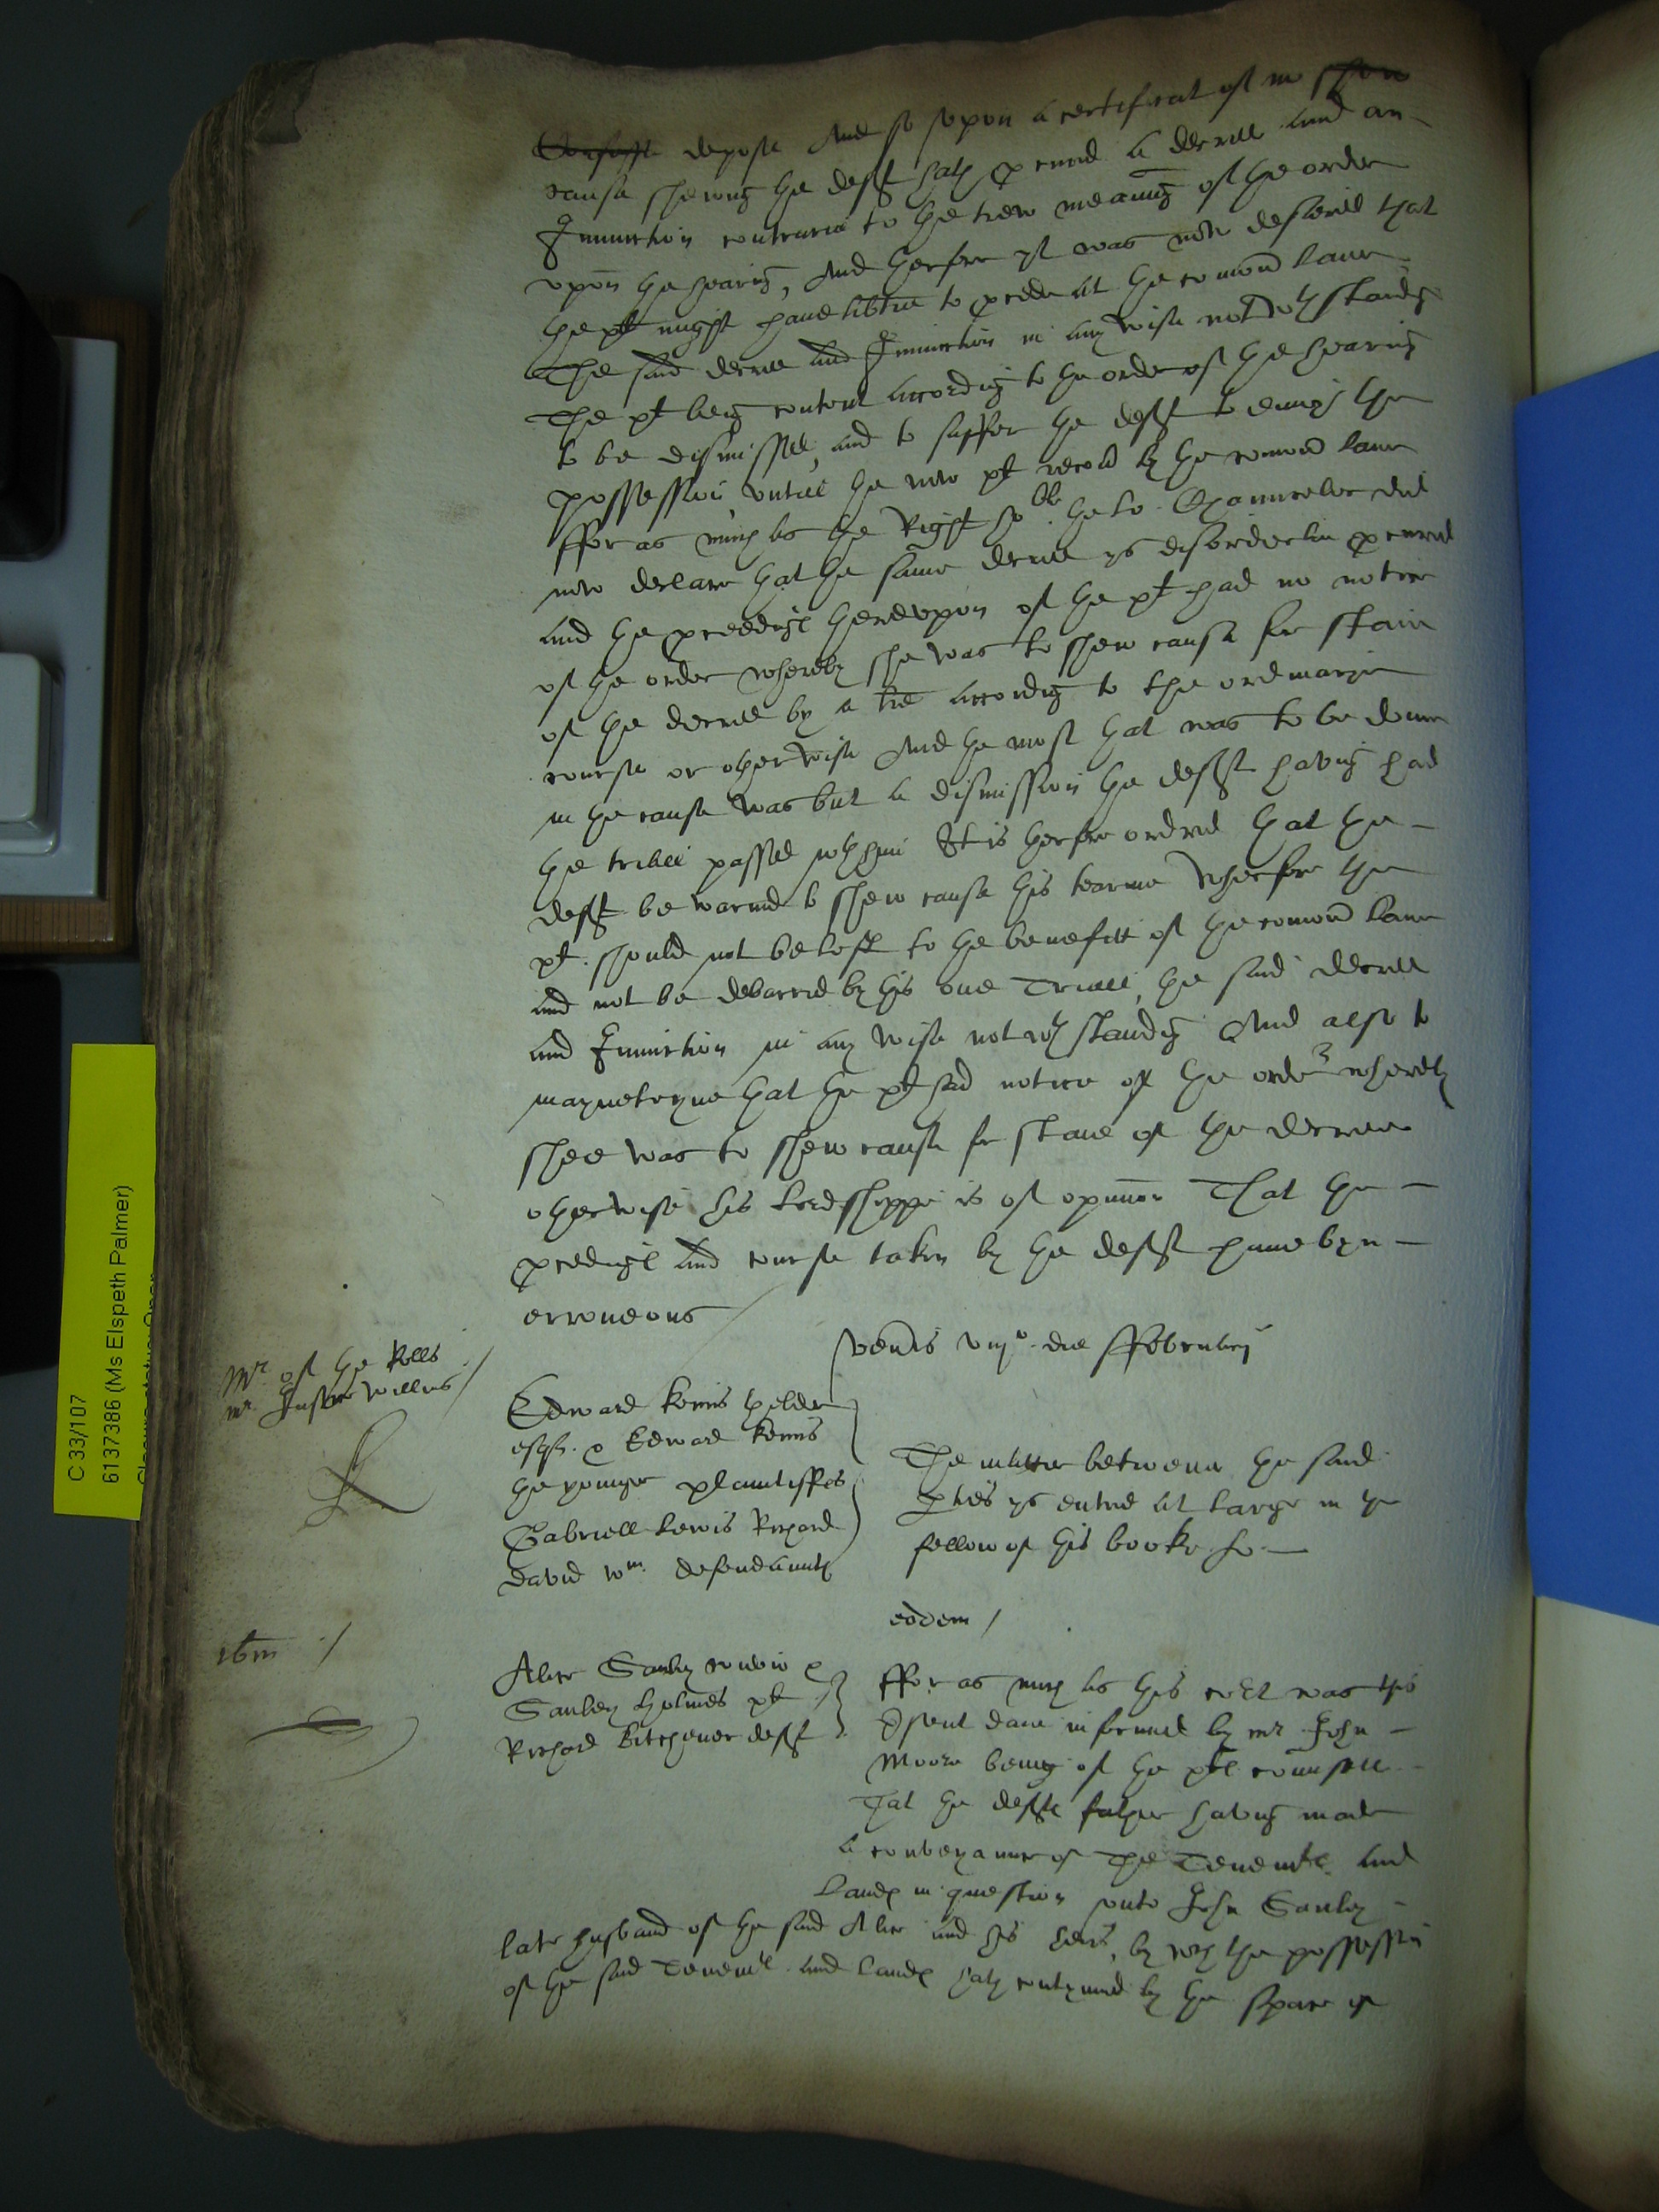 depose And so upon a certificat of no
cause shewing the deft hath p cured a decree and an
Iniunction contrarie to the trew meaning of the order
upon the hearing, And therfore yt was now desiered that
the plt might have lib'tie to p cede at the comon lawe
The said decree and Iniunction in any wise not w'th standing
The plt being content according to the order of the hearing
to be dismissed, and to suffer the deft to enioy the
possession untill the now plt recover by the comon lawe
fforasmuch as the Right ho:ble the Lo: Chauncelor did
now declare that the same decree ys disorderlie p cured
and the p cedings thereupon yf the plt had no notice
of the order whereby she was to shew cause for staie
of the decree by a according to the ordinarye
course or otherwise And the most that was to be donne
in the cause was but a dismission the deft having had
the triall passed w'th him It is therfore ordred that the
deft be warned to shew cause this tearme wherfore the
plt should not be left to the benefitt of the comon lawe
and not be debarred by this one Triall, the said decree
and Iniunction in any wise not w'th standing And also to
mayneteyne that the plt had notice of the order whereby
shee was to shew cause for staie of the decree
otherwise his Lordshippe is of opinion That the
p cedings and course taken by the deft have byn
erroneous
Ven'is viijo die ffebruarij
Mr of the Rolls
mr Justice
Edward Kemis thelder
esqr. & Edward Kemis
the younger plaintiffes
Gabriell Lewis Richard
David wm defendaunts
The matter betwene the said
p'ties ys entred at large in the
fellow of this booke fo
eodem
ibm
Alice Sanley widow &
Sanley Holmes plt
Richard Kitchener deft
fforasmuch as this court was this
p'sent daie informed by mr John
Moore being of the plts counsell
That the defts father having made
a conveyaunce of The Tenem'ts and
lands in question unto John Sanley
late husband of the said Alice and his heirs, by wch the possession
of the said Tenem'ts and lands hath contynued by the space of
C 33/107
6137386 (Ms Elspeth Palmer)